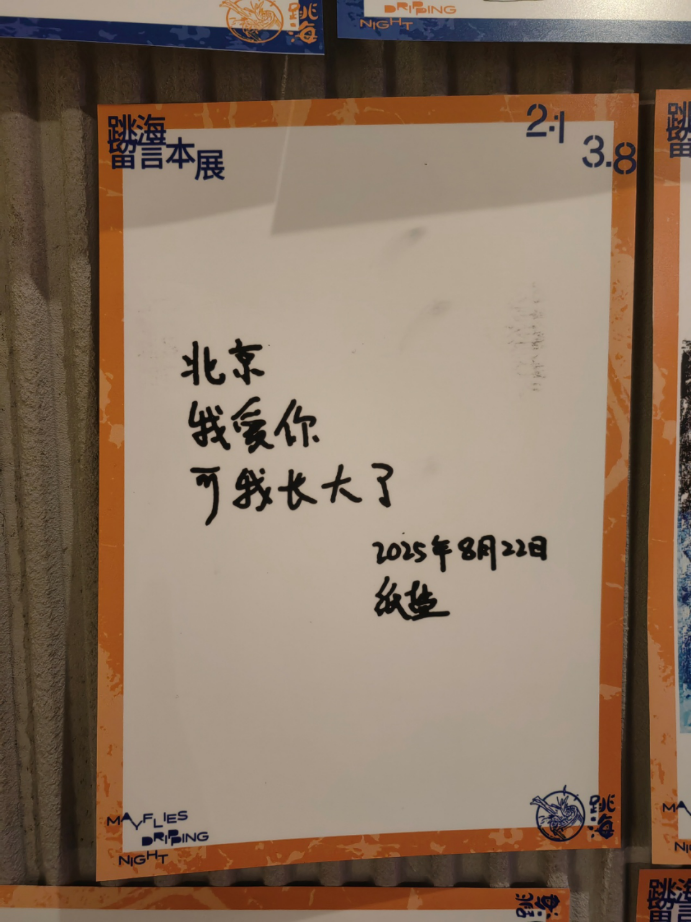 DRIPPING
NIGHT
跳海
跳海
留言本展
2.1
3.8
北京
我爱你
可我长大了
2025年8月22日
纸盐
MAYFLIES
DRIPPING
NIGHT
跳海